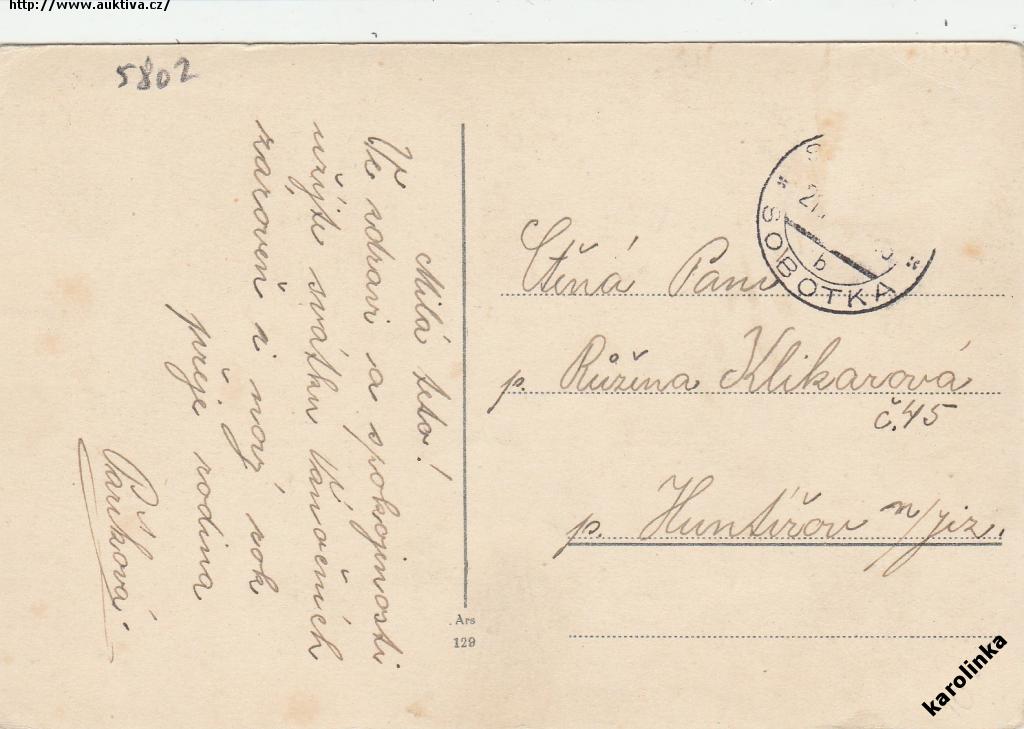 http://www.auktiva.cz/
5802
Milá teto!
Ve zdraví a spokojenosti
užijte svátků Vánočních
zároveň i nový rok
přeje rodina
Paříková
Ars
129
SOBOTKA
b
Ctěná Paní
p. Růžena Klikarová
č. 45
p. Huntířov n/Jiz.
karolinka